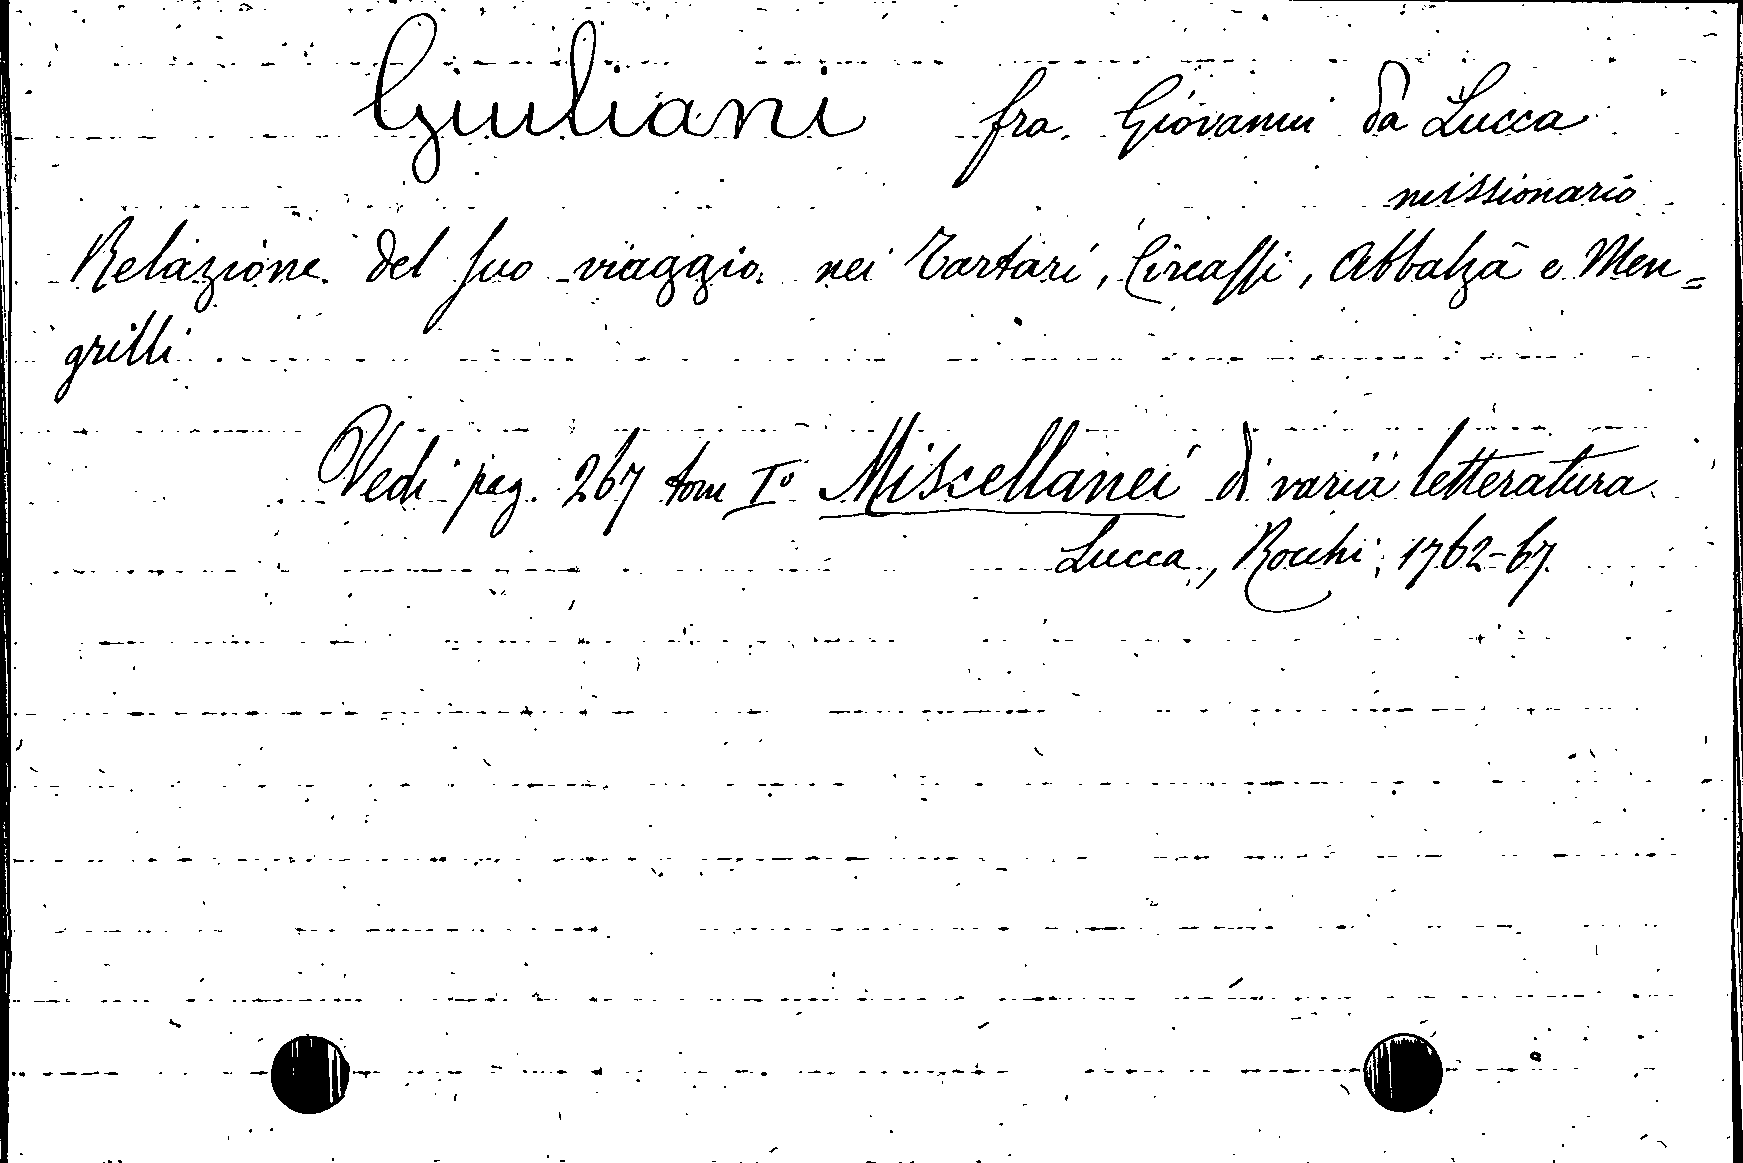 Giuliani fra. Giovanni da Lucca
missionario
Relazione del suo viaggio nei Tartari, Circassi, Abbalza e Men=
grilli
Vedi pag. 267 tom I° Miscellanei di varia letteratura.
Lucca, Rocchi, 1762-67.